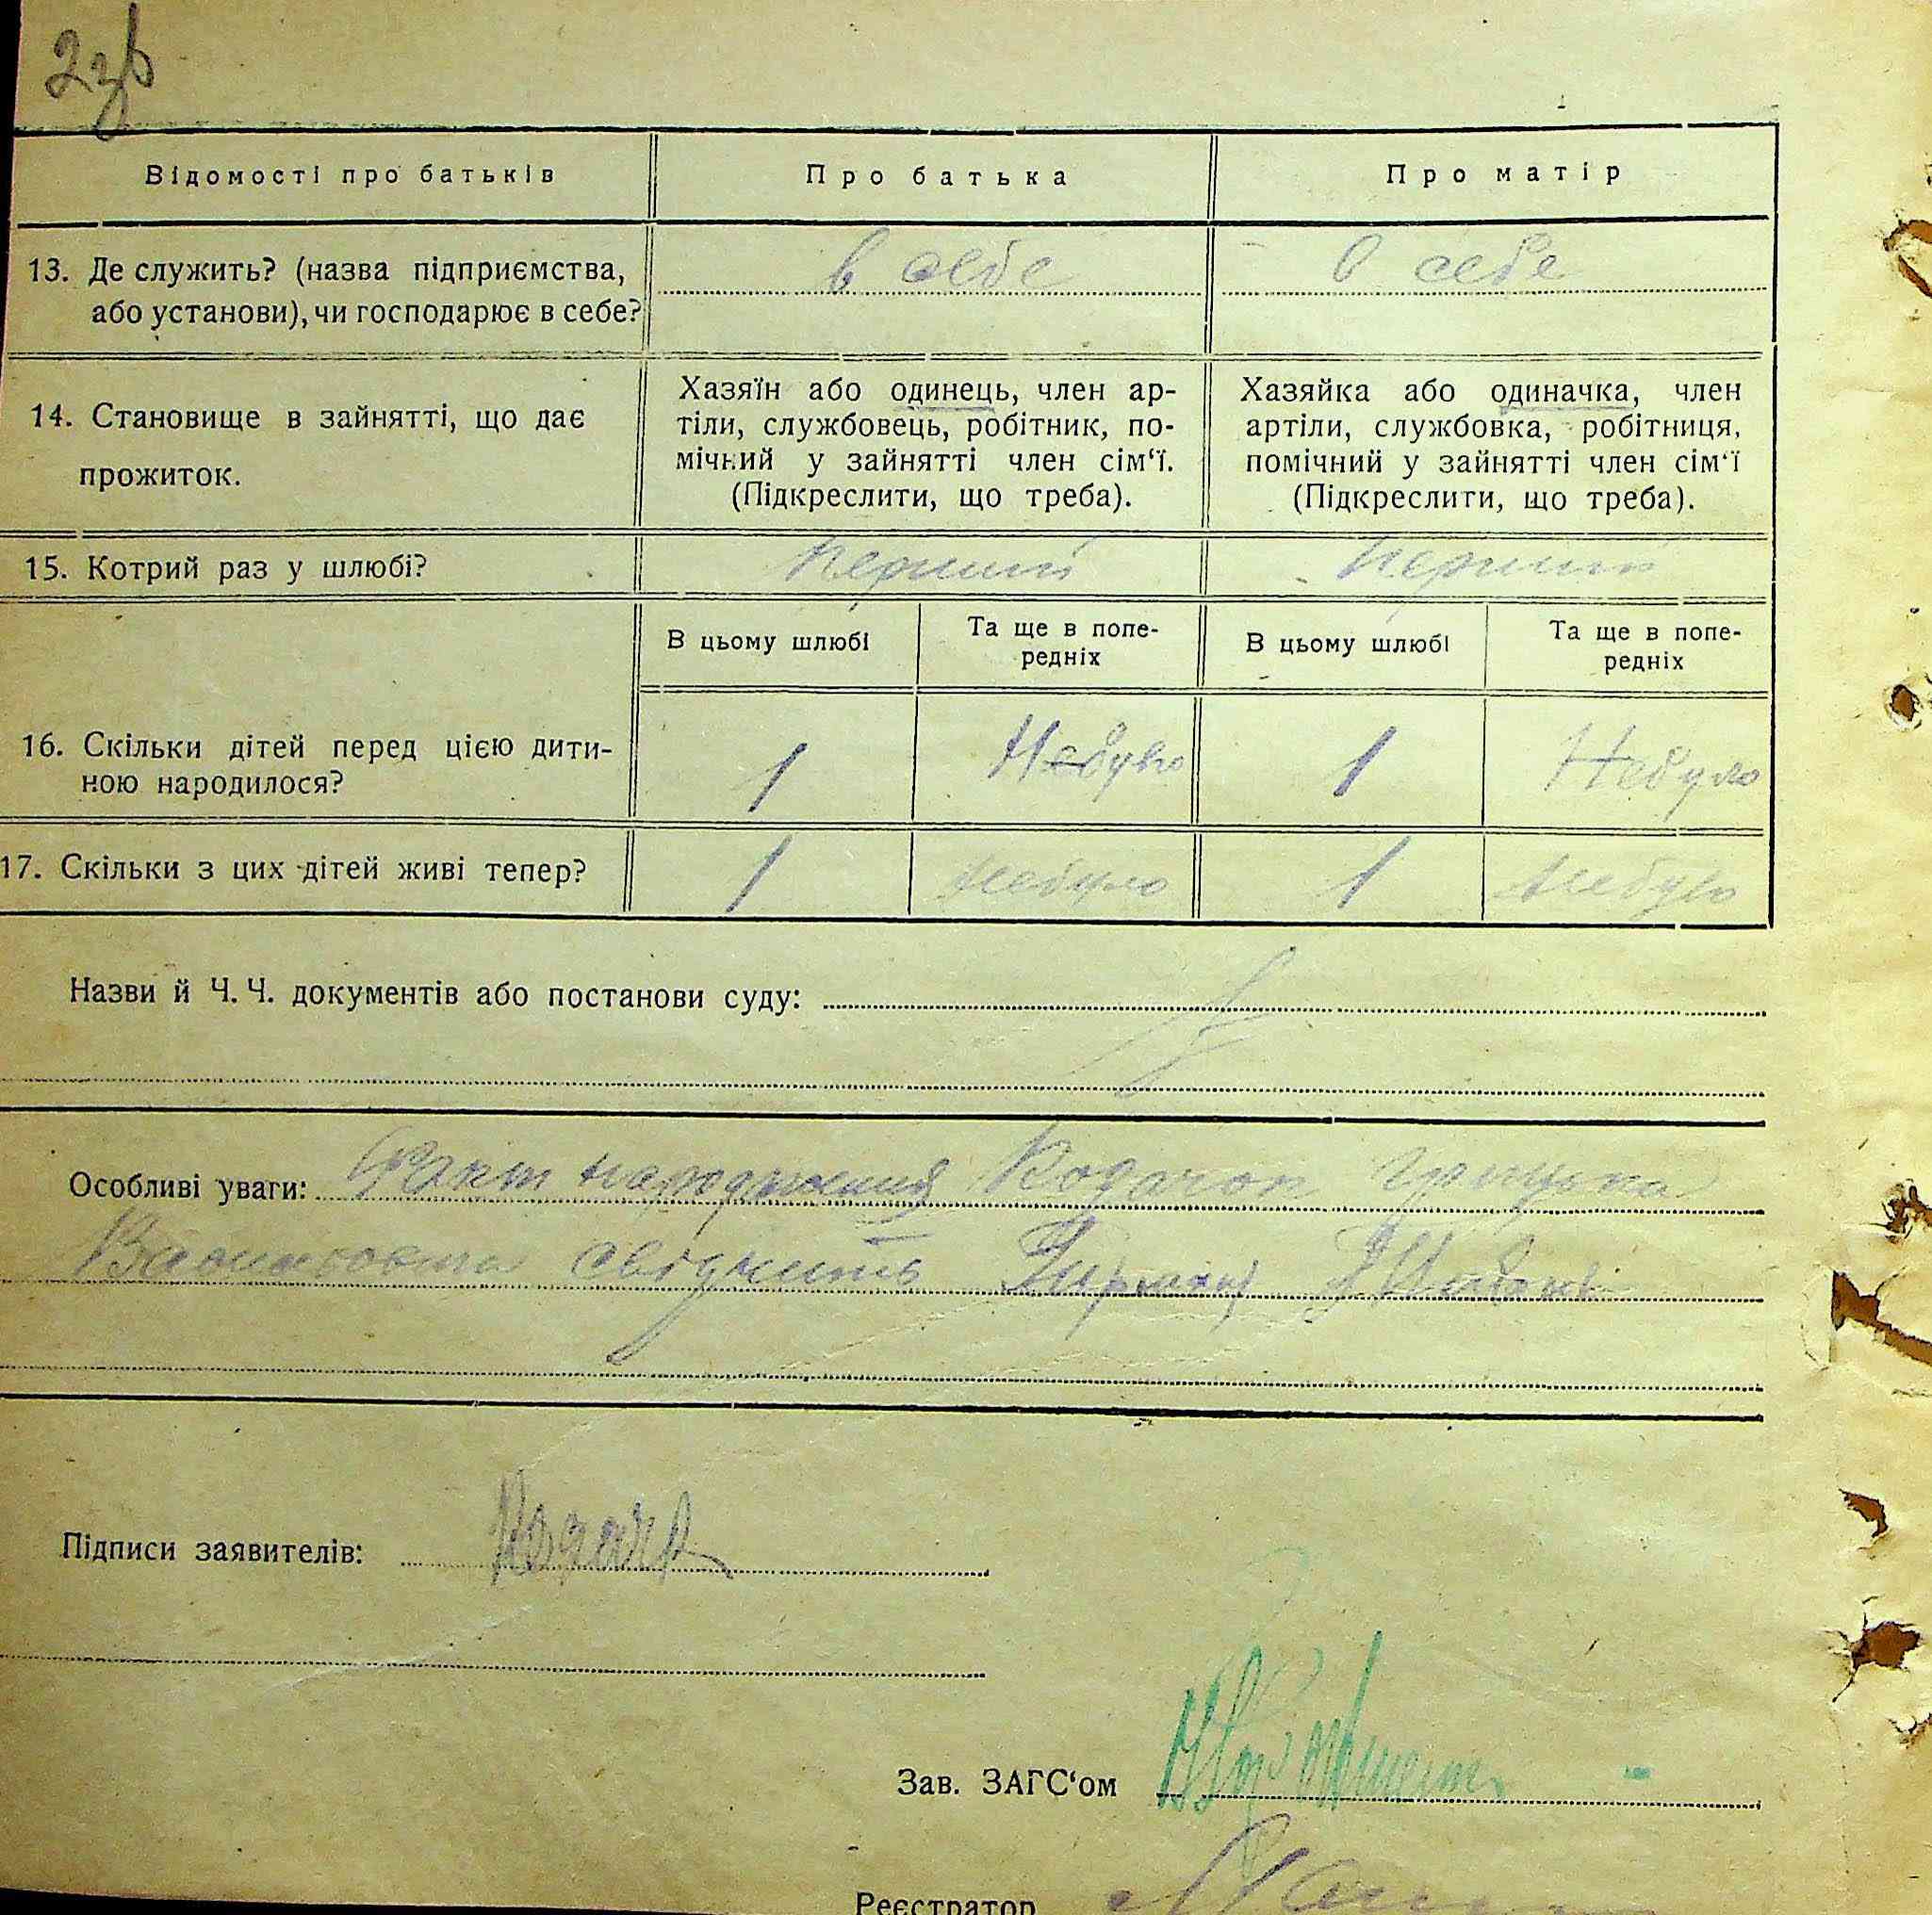 2зв
Відомості про батьків
Про батька
Про матір
13. Де служить? (назва підприємства,
або установи), чи господарює в себе?
в себе
в себе
14. Становище в зайнятті, що дає
прожиток.
Хазяїн або одинець, член ар-
тіли, службовець, робітник, по-
мічний у зайнятті член сім‘ї.
(Підкреслити, що треба).
Хазяйка або одиначка, член
артіли, службовка, робітниця,
помічний у зайнятті член сім‘ї
(Підкреслити, що треба).
15. Котрий раз у шлюбі?
перший
перший
В цьому шлюбі
Та ще в попе-
редніх
В цьому шлюбі
Та ще в попе-
редніх
16. Скільки дітей перед цією дити-
ною народилося?
1
Небуло
1
Небуло
17. Скільки з цих дітей живі тепер?
1
небуло
1
небуло
Назви й Ч. Ч. документів або постанови суду:
Особливі уваги: Факт народження Грицька
свідчить
Підписи заявителів:
Зав. ЗАГС‘ом
Реєстратор